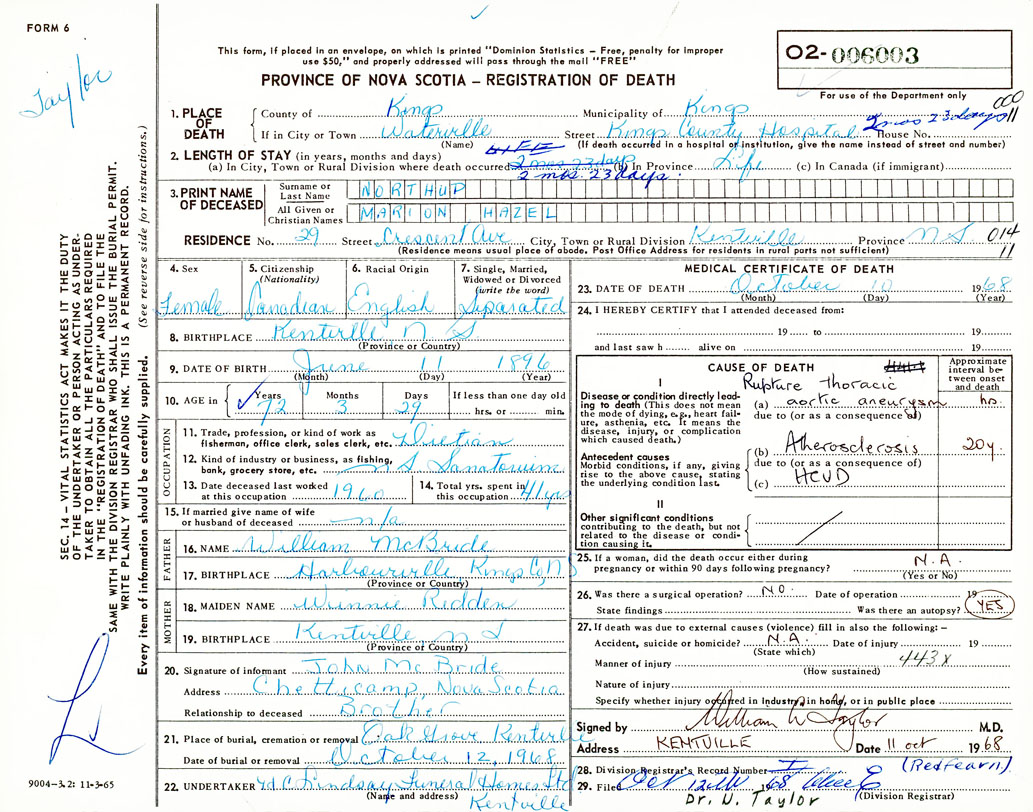 FORM 6
Taylor
This form, if placed in an envelope, on which is printed "Dominion Statistics – Free, penalty for improper
use $50," and properly addressed will pass through the mail "FREE"
PROVINCE OF NOVA SCOTIA – REGISTRATION OF DEATH
O2-006003
For use of the Department only
000
11
1. PLACE OF DEATH
County of Kings Municipality of Kings
If in City or Town Waterville Street Kings County Hospital House No. 2 mos 23 days
(Name) (If death occurred in a hospital or institution, give the name instead of street and number)
2. LENGTH OF STAY (in years, months and days) LIFE
(a) In City, Town or Rural Division where death occurred 2 mos 23 days (b) in Province Life (c) In Canada (if immigrant)
2 mos. 23 days.
3. PRINT NAME OF DECEASED
Surname or Last Name NORTHUP
All Given or Christian Names MARION HAZEL
RESIDENCE No. 29 Street Crescent Ave City, Town or Rural Division Kentville Province N S 014
(Residence means usual place of abode. Post Office Address for residents in rural parts not sufficient) 11
4. Sex Female
5. Citizenship (Nationality) Canadian
6. Racial Origin English
7. Single, Married, Widowed or Divorced (write the word) Separated
8. BIRTHPLACE Kentville N S
(Province or Country)
9. DATE OF BIRTH June 11 1896
(Month) (Day) (Year)
10. AGE in Years 72 Months 3 Days 29 If less than one day old
hrs. or min.
OCCUPATION
11. Trade, profession, or kind of work as
fisherman, office clerk, sales clerk, etc. Dietian
12. Kind of industry or business, as fishing,
bank, grocery store, etc. N S Sanatorium
13. Date deceased last worked
at this occupation 1960
14. Total yrs. spent in
this occupation 41 yrs
15. If married give name of wife
or husband of deceased n/a
FATHER
16. NAME William McBride
17. BIRTHPLACE Harbourville Kings Co, NS
(Province or Country)
MOTHER
18. MAIDEN NAME Winnie Redden
19. BIRTHPLACE Kentville N S
(Province or Country)
20. Signature of informant John McBride
Address Chetticamp, Nova Scotia
Relationship to deceased Brother
21. Place of burial, cremation or removal Oak Grove Kentville
Date of burial or removal October 12, 1968
22. UNDERTAKER Lindsay Funeral Homes Ltd
(Name and address) Kentville
MEDICAL CERTIFICATE OF DEATH
23. DATE OF DEATH October 10 1968
(Month) (Day) (Year)
24. I HEREBY CERTIFY that I attended deceased from:
19 to 19
and last saw h alive on 19
CAUSE OF DEATH
Approximate interval between onset and death
I
Disease or condition directly leading to death (This does not mean
the mode of dying, e.g., heart failure, asthenia, etc. It means the
disease, injury, or complication
which caused death.)
Rupture Thoracic
(a) aortic aneurysm hrs.
due to (or as a consequence of)
Antecedent causes
Morbid conditions, if any, giving
rise to the above cause, stating
the underlying condition last.
(b) Atherosclerosis 20y.
due to (or as a consequence of)
(c) HCVD
II
Other significant conditions
contributing to the death, but not
related to the disease or condition causing it.
25. If a woman, did the death occur either during
pregnancy or within 90 days following pregnancy? N.A.
(Yes or No)
26. Was there a surgical operation? NO Date of operation 19
State findings Was there an autopsy? YES
27. If death was due to external causes (violence) fill in also the following:–
Accident, suicide or homicide? N.A. Date of injury 19
(State which)
Manner of injury 443X
(How sustained)
Nature of injury
Specify whether injury occurred in Industry, in home, or in public place
Signed by William W Taylor M.D.
Address KENTVILLE Date 11 oct 1968
28. Division Registrar's Record Number (Redfearn)
29. Filed Oct 12th 68
(Division Registrar)
Dr. W. Taylor
SEC. 14 – VITAL STATISTICS ACT MAKES IT THE DUTY
OF THE UNDERTAKER OR PERSON ACTING AS UNDER-
TAKER TO OBTAIN ALL THE PARTICULARS REQUIRED
IN THE "REGISTRATION OF DEATH" AND TO FILE THE
SAME WITH THE DIVISION REGISTRAR WHO SHALL ISSUE THE BURIAL PERMIT.
WRITE PLAINLY WITH UNFADING INK. THIS IS A PERMANENT RECORD.
Every item of information should be carefully supplied. (See reverse side for instructions.)
9004-3.2: 11-3-65